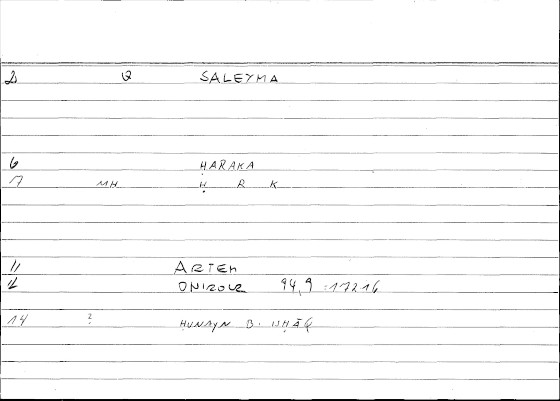 2 Q SALEYMA
6 ḤARAKA
7 MH Ḥ R K
11 ARTEM
12 ONIROCR 94,9 = 17216
14 ? ḤUNAYN B. ISḤĀQ